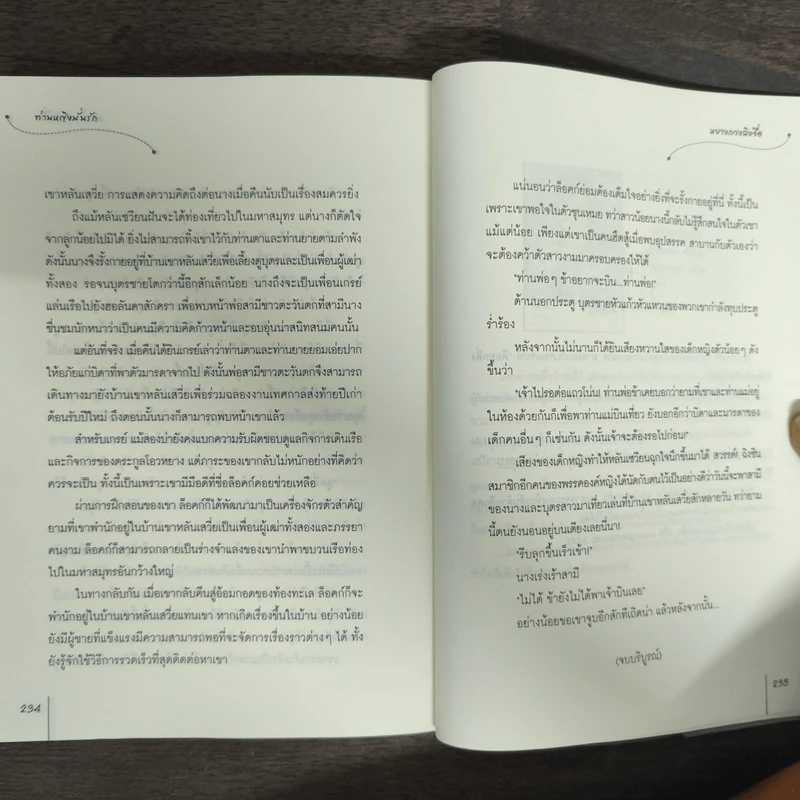 ท่านหญิงมั่นรัก
เขาหลันเสวี่ย การแสดงความคิดถึงต่อนางเมื่อคืนนับเป็นเรื่องสมควรยิ่ง
ถึงแม้หลันเซวียนฝันจะได้ท่องเที่ยวไปในมหาสมุทร แต่นางก็ตัดใจ
จากลูกน้อยไปมิได้ ยิ่งไม่สามารถทิ้งเขาไว้กับท่านตาและท่านยายตามลำพัง
ดังนั้นนางจึงรั้งกายอยู่ที่บ้านเขาหลันเสวี่ยเพื่อเลี้ยงดูบุตรและเป็นเพื่อนผู้เฒ่า
ทั้งสอง รอจนบุตรชายโตกว่านี้อีกสักเล็กน้อย นางถึงจะเป็นเพื่อนเกรย์
แล่นเรือไปยังฮอลันดาสักครา เพื่อพบหน้าพ่อสามีชาวตะวันตกที่สามีนาง
ชื่นชมนักหนาว่าเป็นคนมีความคิดก้าวหน้าและอบอุ่นน่าสนิทสนมคนนั้น
แต่อันที่จริง เมื่อคืนได้ยินเกรย์เล่าว่าท่านตาและท่านยายยอมเอ่ยปาก
ให้อภัยแก่บิดาที่พาตัวมารดาจากไป ดังนั้นพ่อสามีชาวตะวันตกจึงสามารถ
เดินทางมายังบ้านเขาหลันเสวี่ยเพื่อร่วมฉลองงานเทศกาลส่งท้ายปีเก่า
ต้อนรับปีใหม่ ถึงตอนนั้นนางก็สามารถพบหน้าเขาแล้ว
สำหรับเกรย์ แม้สองบ่ายังคงแบกความรับผิดชอบดูแลกิจการเดินเรือ
และกิจการของตระกูลโอวหยาง แต่ภาระของเขากลับไม่หนักอย่างที่คิดว่า
ควรจะเป็น ทั้งนี้เป็นเพราะเขามีมือดีที่ชื่อล็อคก์คอยช่วยเหลือ
ผ่านการฝึกสอนของเขา ล็อคก์ก็ได้พัฒนามาเป็นเครื่องจักรตัวสำคัญ
ยามที่เขาพำนักอยู่ในบ้านเขาหลันเสวี่ยเป็นเพื่อนผู้เฒ่าทั้งสองและภรรยา
คนงาม ล็อคก์ก็สามารถกลายเป็นร่างจำแลงของเขานำพาขบวนเรือท่อง
ไปในมหาสมุทรอันกว้างใหญ่
ในทางกลับกัน เมื่อเขากลับคืนสู่อ้อมกอดของท้องทะเล ล็อคก์ก็จะ
พำนักอยู่ในบ้านเขาหลันเสวี่ยแทนเขา หากเกิดเรื่องขึ้นในบ้าน อย่างน้อย
ยังมีผู้ชายที่แข็งแรงมีความสามารถพอที่จะจัดการเรื่องราวต่างๆ ได้ ทั้ง
ยังรู้จักใช้วิธีการรวดเร็วที่สุดติดต่อหาเขา
234
แน่นอนว่าล็อคก์ย่อมต้องเต็มใจอย่างยิ่งที่จะรั้งกายอยู่ที่นี่ ทั้งนี้เป็น
เพราะเขาพอใจในตัวชุนเหมย ทว่าสาวน้อยนางนี้กลับไม่รู้สึกสนใจในตัวเขา
แม้แต่น้อย เพียงแต่เขาเป็นคนฮึดสู้เมื่อพบอุปสรรค สาบานกับตัวเองว่า
จะต้องคว้าตัวสาวงามมาครอบครองให้ได้
"ท่านพ่อๆ ข้าอยากจะบิน...ท่านพ่อ!"
ด้านนอกประตู บุตรชายหัวแก้วหัวแหวนของพวกเขากำลังทุบประตู
ร่ำร้อง
หลังจากนั้นไม่นานก็ได้ยินเสียงหวานใสของเด็กหญิงตัวน้อยๆ ดัง
ขึ้นว่า
"เจ้าไปรอต่อแถวโน่น! ท่านพ่อข้าเคยบอกว่ายามที่เขาและท่านแม่อยู่
ในห้องด้วยกันก็เพื่อพาท่านแม่บินเที่ยว ยังบอกอีกว่าบิดาและมารดาของ
เด็กคนอื่นๆ ก็เช่นกัน ดังนั้นเจ้าจะต้องรอไปก่อน!"
เสียงของเด็กหญิงทำให้หลันเซวียนฉุกใจนึกขึ้นมาได้ สวรรค์! ฉิงซิน
สมาชิกอีกคนของพรรคองค์หญิงได้นัดกับตนไว้เป็นอย่างดีว่าวันนี้จะพาสามี
ของนางและบุตรสาวมาเที่ยวเล่นที่บ้านเขาหลันเสวี่ยสักหลายวัน ทว่ายาม
นี้ตนยังนอนอยู่บนเตียงเลยนี่นา!
"รีบลุกขึ้นเร็วเข้า!"
นางเร่งเร้าสามี
"ไม่ได้ ข้ายังไม่ได้พาเจ้าบินเลย"
อย่างน้อยขอเขาจูบอีกสักทีเถิดน่า แล้วหลังจากนั้น...
(จบบริบูรณ์)